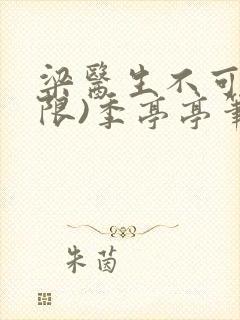 梁醫生不可
限)季亭亭
朱茵